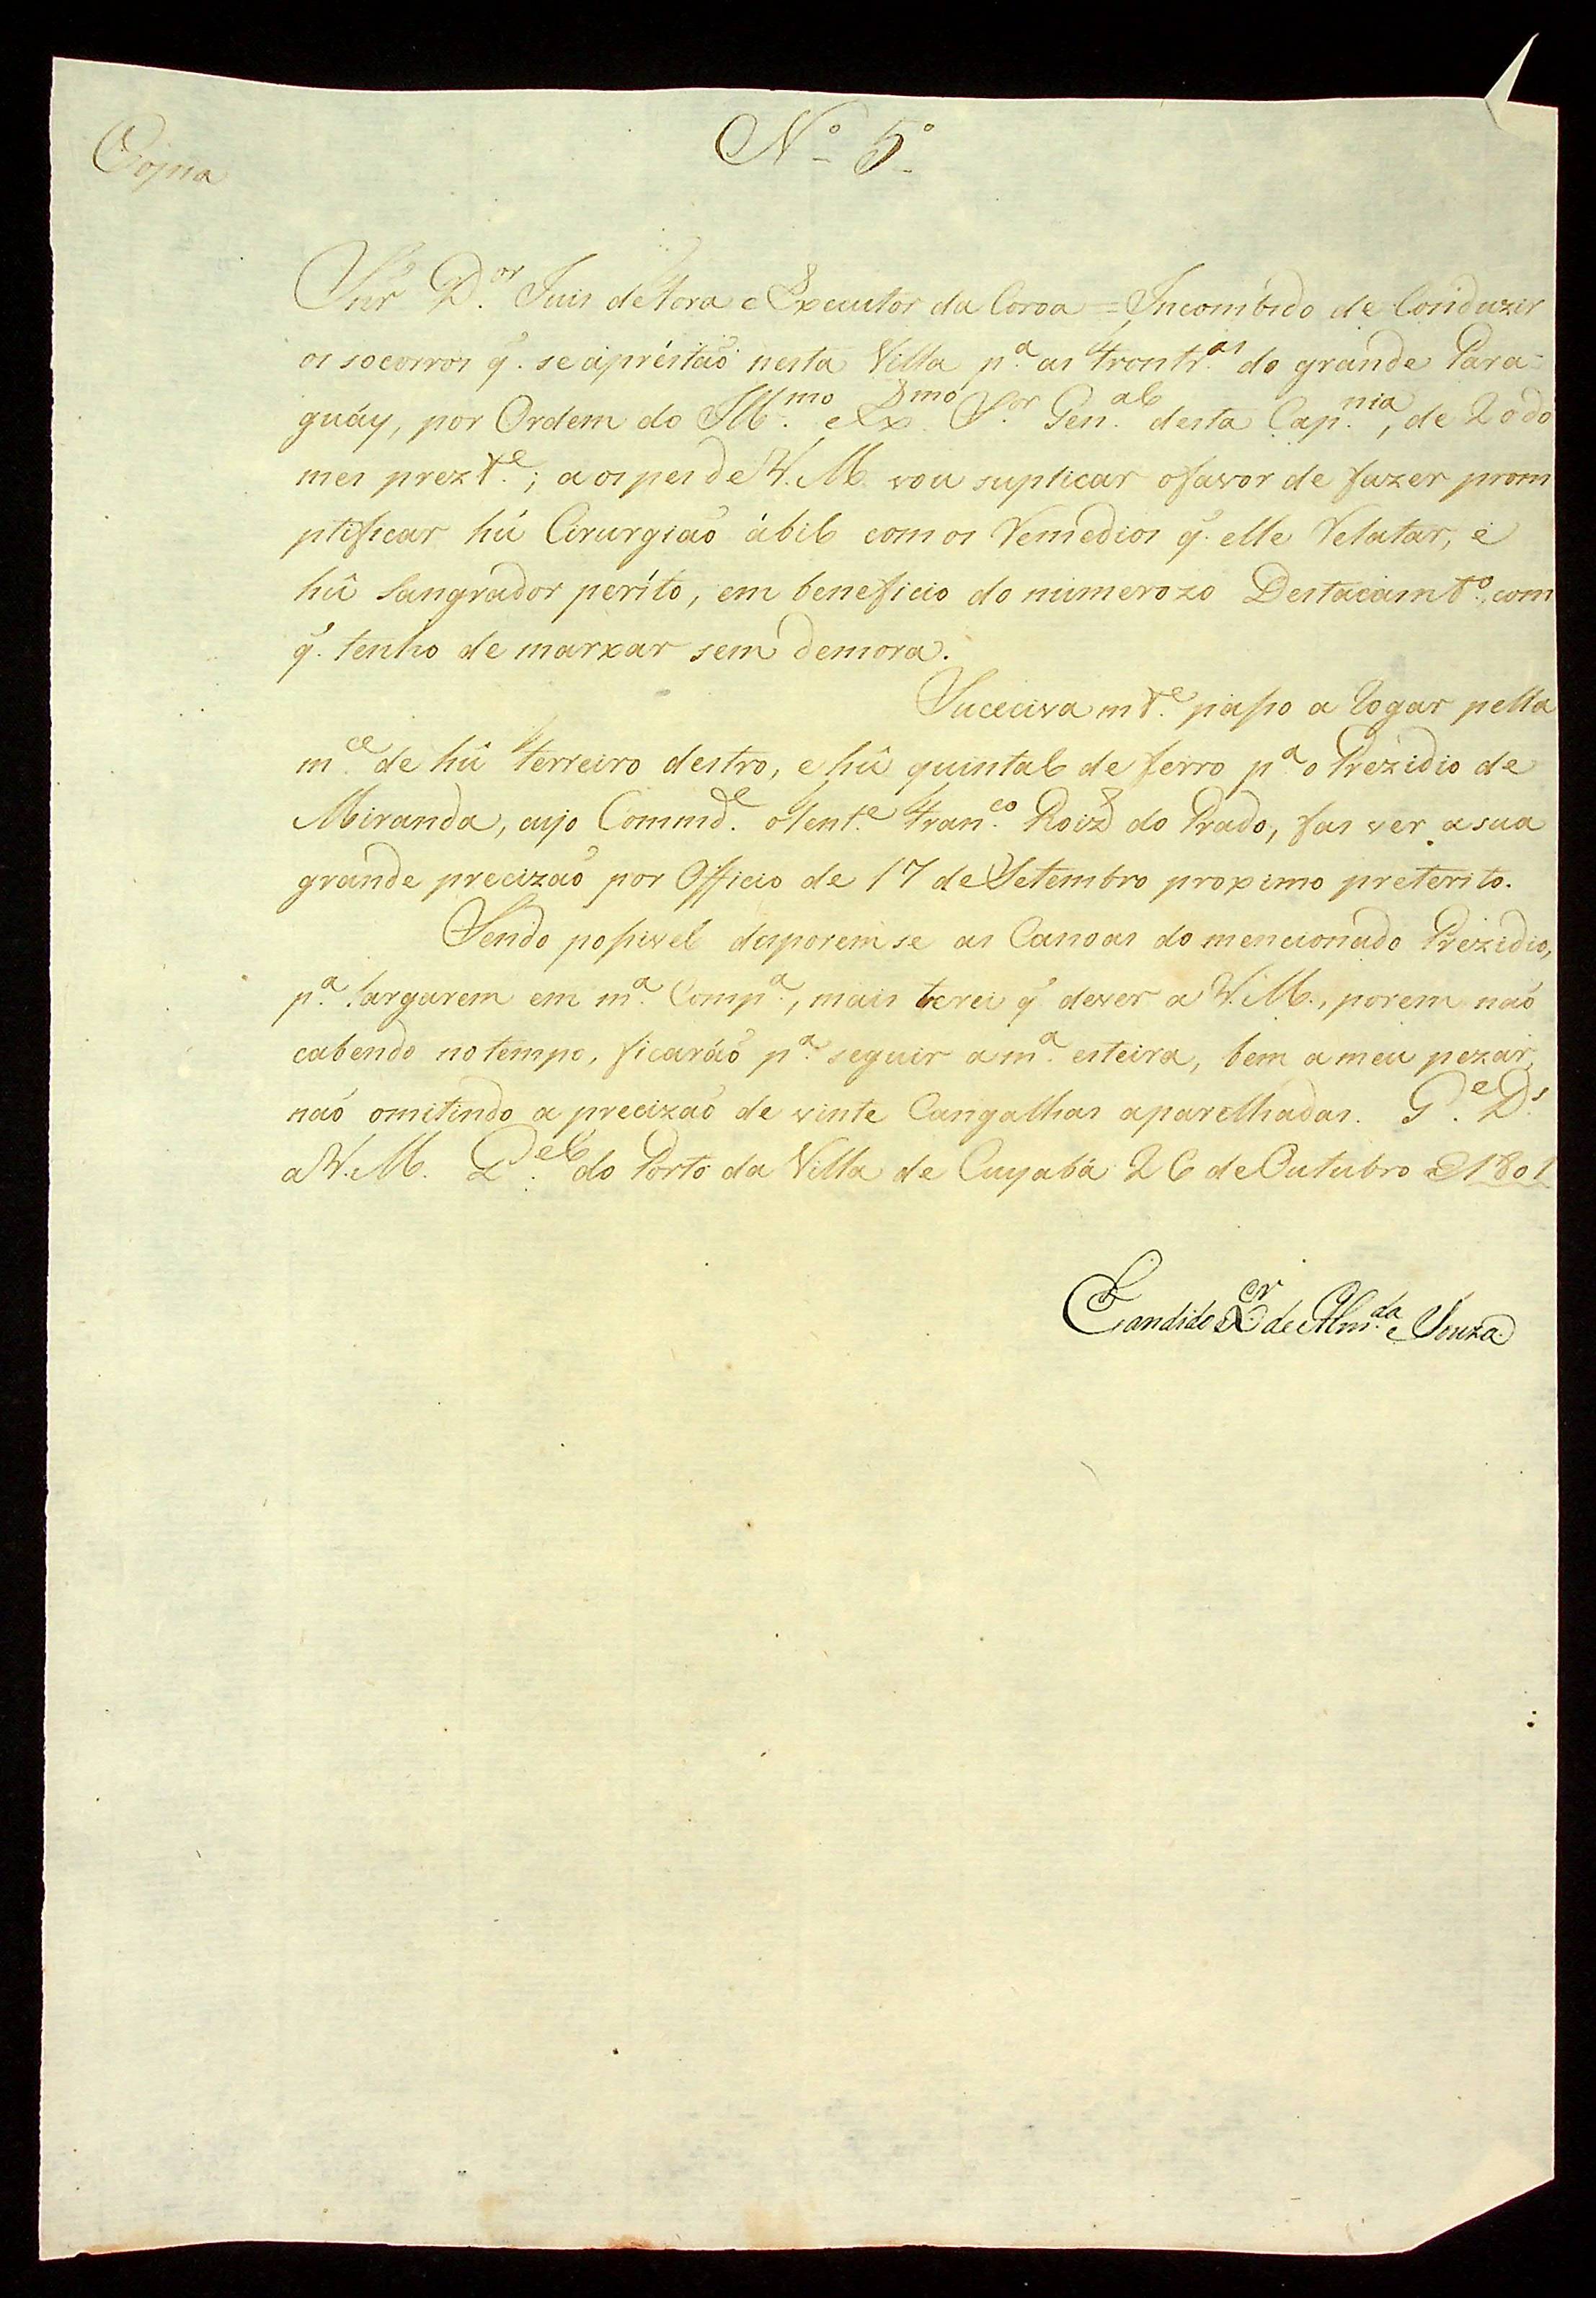 Copia
N.º 5.º
Snr D.or Juis de Fora e Executor da Coroa = Incombido de Conduzir
os socorros q̃. se apréstaõ nesta Villa p.ª as Frontr.as do grande Para=
guáy, por Ordem do Ill.mo e Ex.mo S.or Gen.al desta Cap.nia, de 20 do
mes prezt.e; a os pes de V. M. vou suplicar o favor de fazer prom
ptificar hũ Cirurgiaõ ábil com os Remedios q̃. elle Relatar, e
hũ Sangrador períto, em beneficio do numerozo Destacamt.º, com
q̃. tenho de marxar sem demora.
Sucecivamt.e passo a Rogar pella
m.ce de hũ Ferreiro destro, e hũ quintal de ferro p.ª o Prezidio de
Miranda, cujo Commd.e o Tent.e Fran.co Roiz do Prado, fas ver a sua
grande precizaõ por Officio de 17 de Setembro proximo preterito.
Sendo possivel disporem se as Canoas do mencionado Prezidio,
p.ª largarem em m.ª Comp.ª, mais terei q̃ dever a V. M., porem naõ
cabendo no tempo, ficaráõ p.ª seguir a m.ª esteira, bem a meu pezar,
naõ omitindo a precizaõ de vinte Cangalhas aparelhadas. G.e D.s
a V. M. Q.el do Porto da Villa de Cuyabá 26 de Outubro d 1801
Candido X.er de Alm.da e Souza